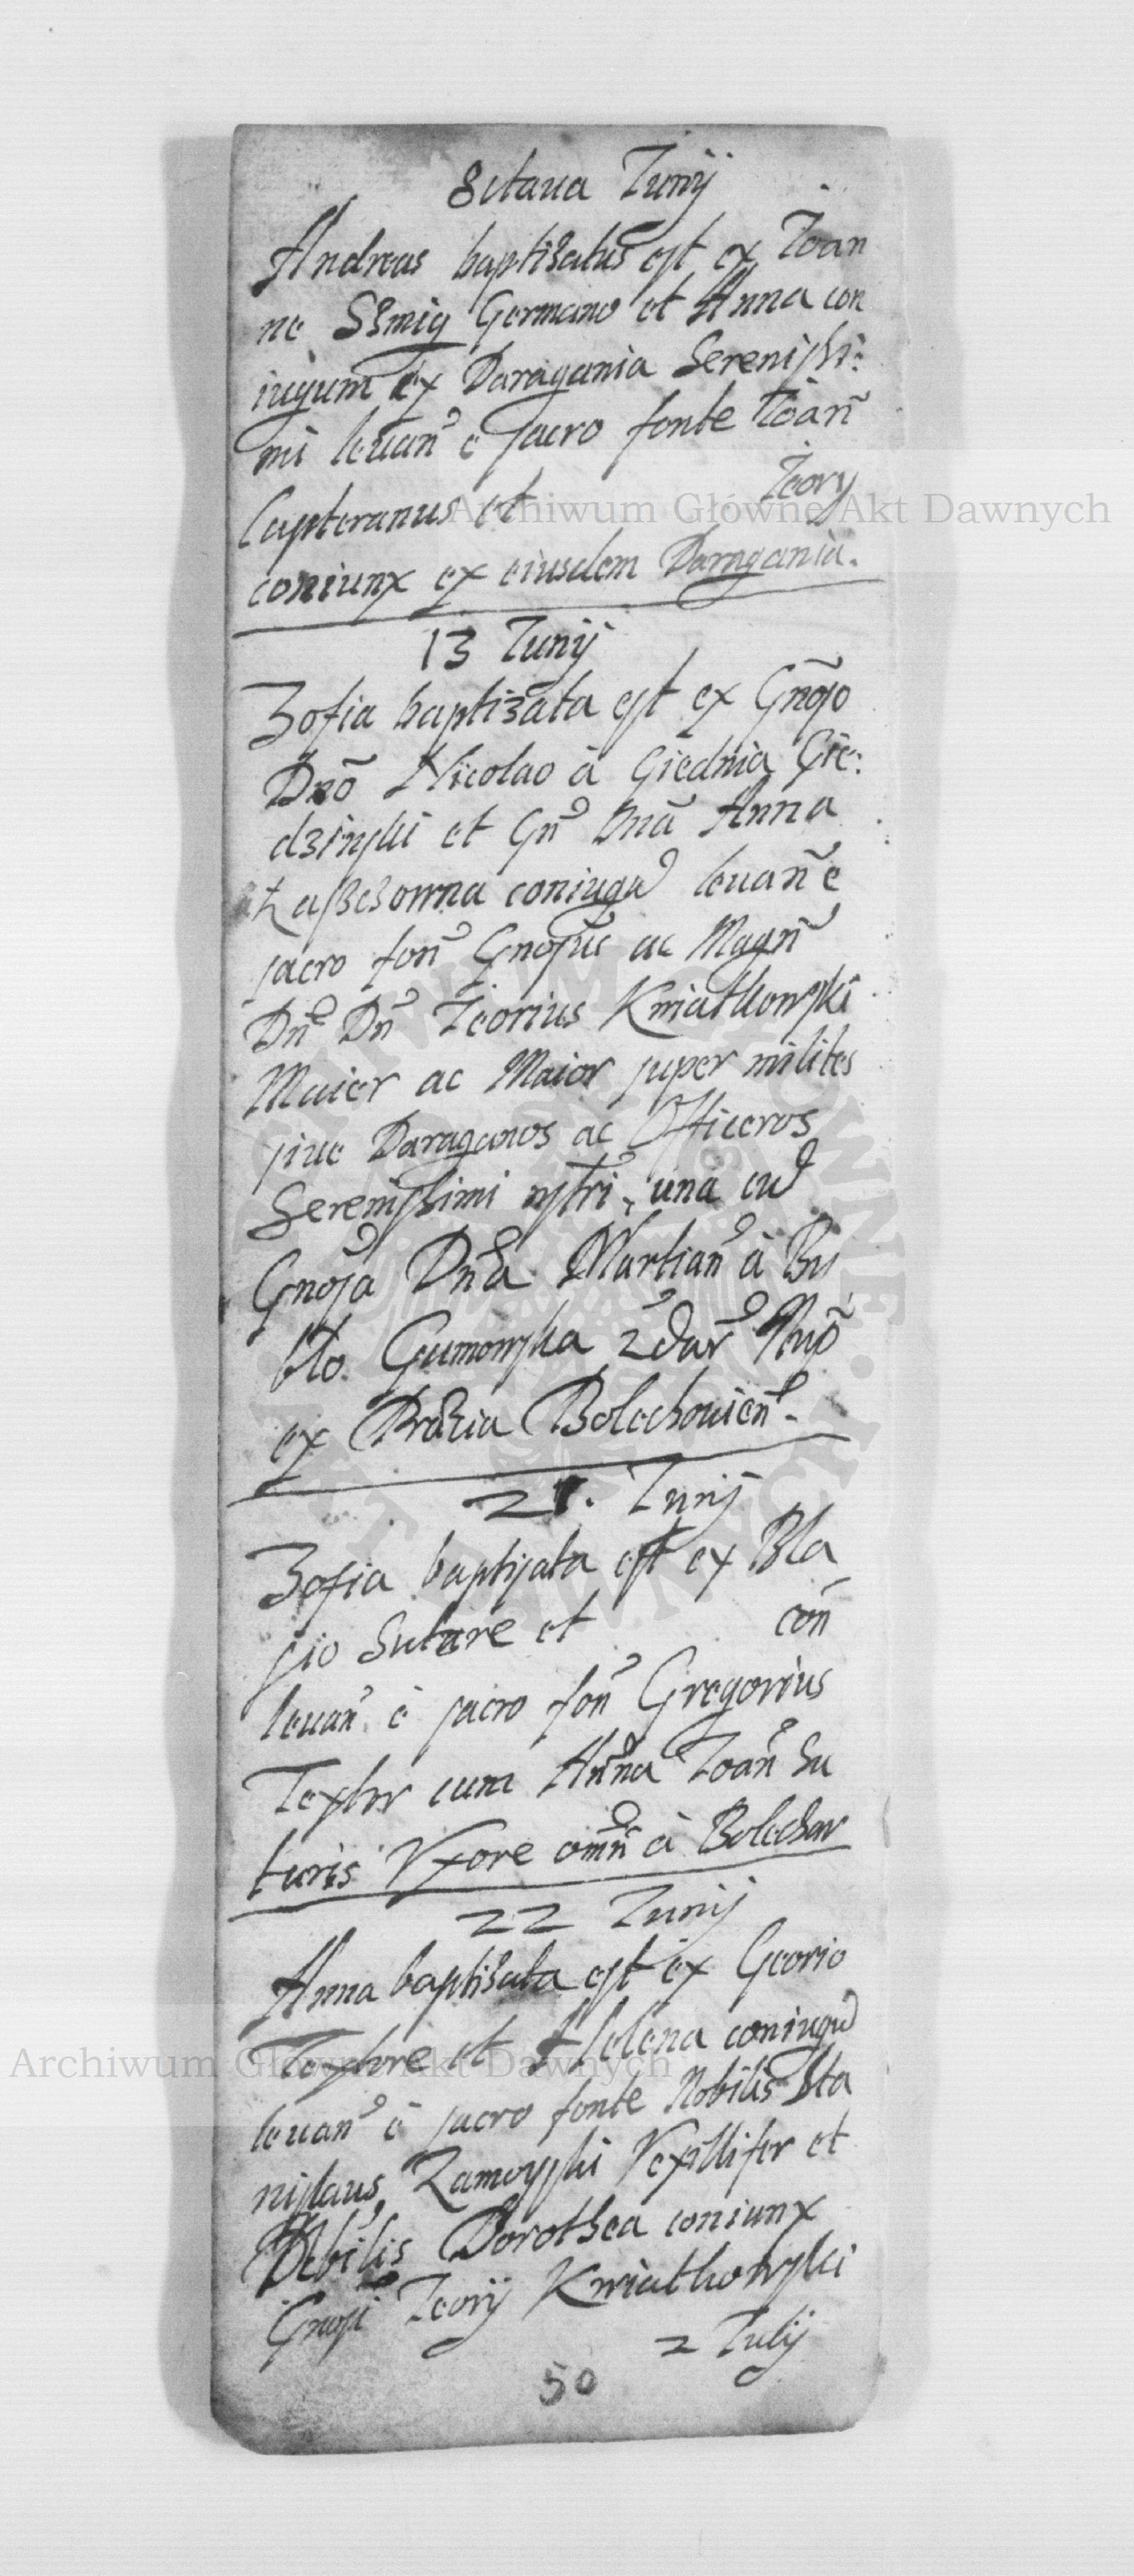 8ctaua Junij
Andreas baptisatus est ex Joan
ne Ssmig Germano et Anna con
iugum ex Daragania Serenissi:
mi leuan̄ e sacro fonte Joan̄
Capteranus et Jeory
coniunx ex eiusdem Daragania.
13 Junij
Zofia baptizata est ex Gnōso
Dnō Nicolao à Giednia Gie:
dzinski et Gn̄ Dnā Anna
coniugū leuan̄ e
sacro fon̄ Gnosus ac Magn̄
Dn̄ Dn̄ Jeorius Kwiatkowski
Maier ac Maior super milites
siue Daraganos ac Officeros
Serenissimi nr̄i, una cū
Gnosa Dn̄a Martian̄ à By
Gumowska
ex Bolechouien̄.
21. Junij
Zofia baptisata est ex Bla
sio Sutore et con̄
leuan̄ è sacro fon̄ Gregorius
Textor cum Anna Joan̄ Su
toris Vxore omn̄ à Bolechow
22 Junij
Anna baptisata est ex Georio
Textore et Helena coniugū
leuan̄ è sacro fonte Nobilis Sta
nislaus Zamoyski Vexillifer et
Nobilis Dorothea coniunx
Gnosi Jeorij Kwiatkowski
2 Julij
50
Archiwum Główne Akt Dawnych
Archiwum Główne Akt Dawnych